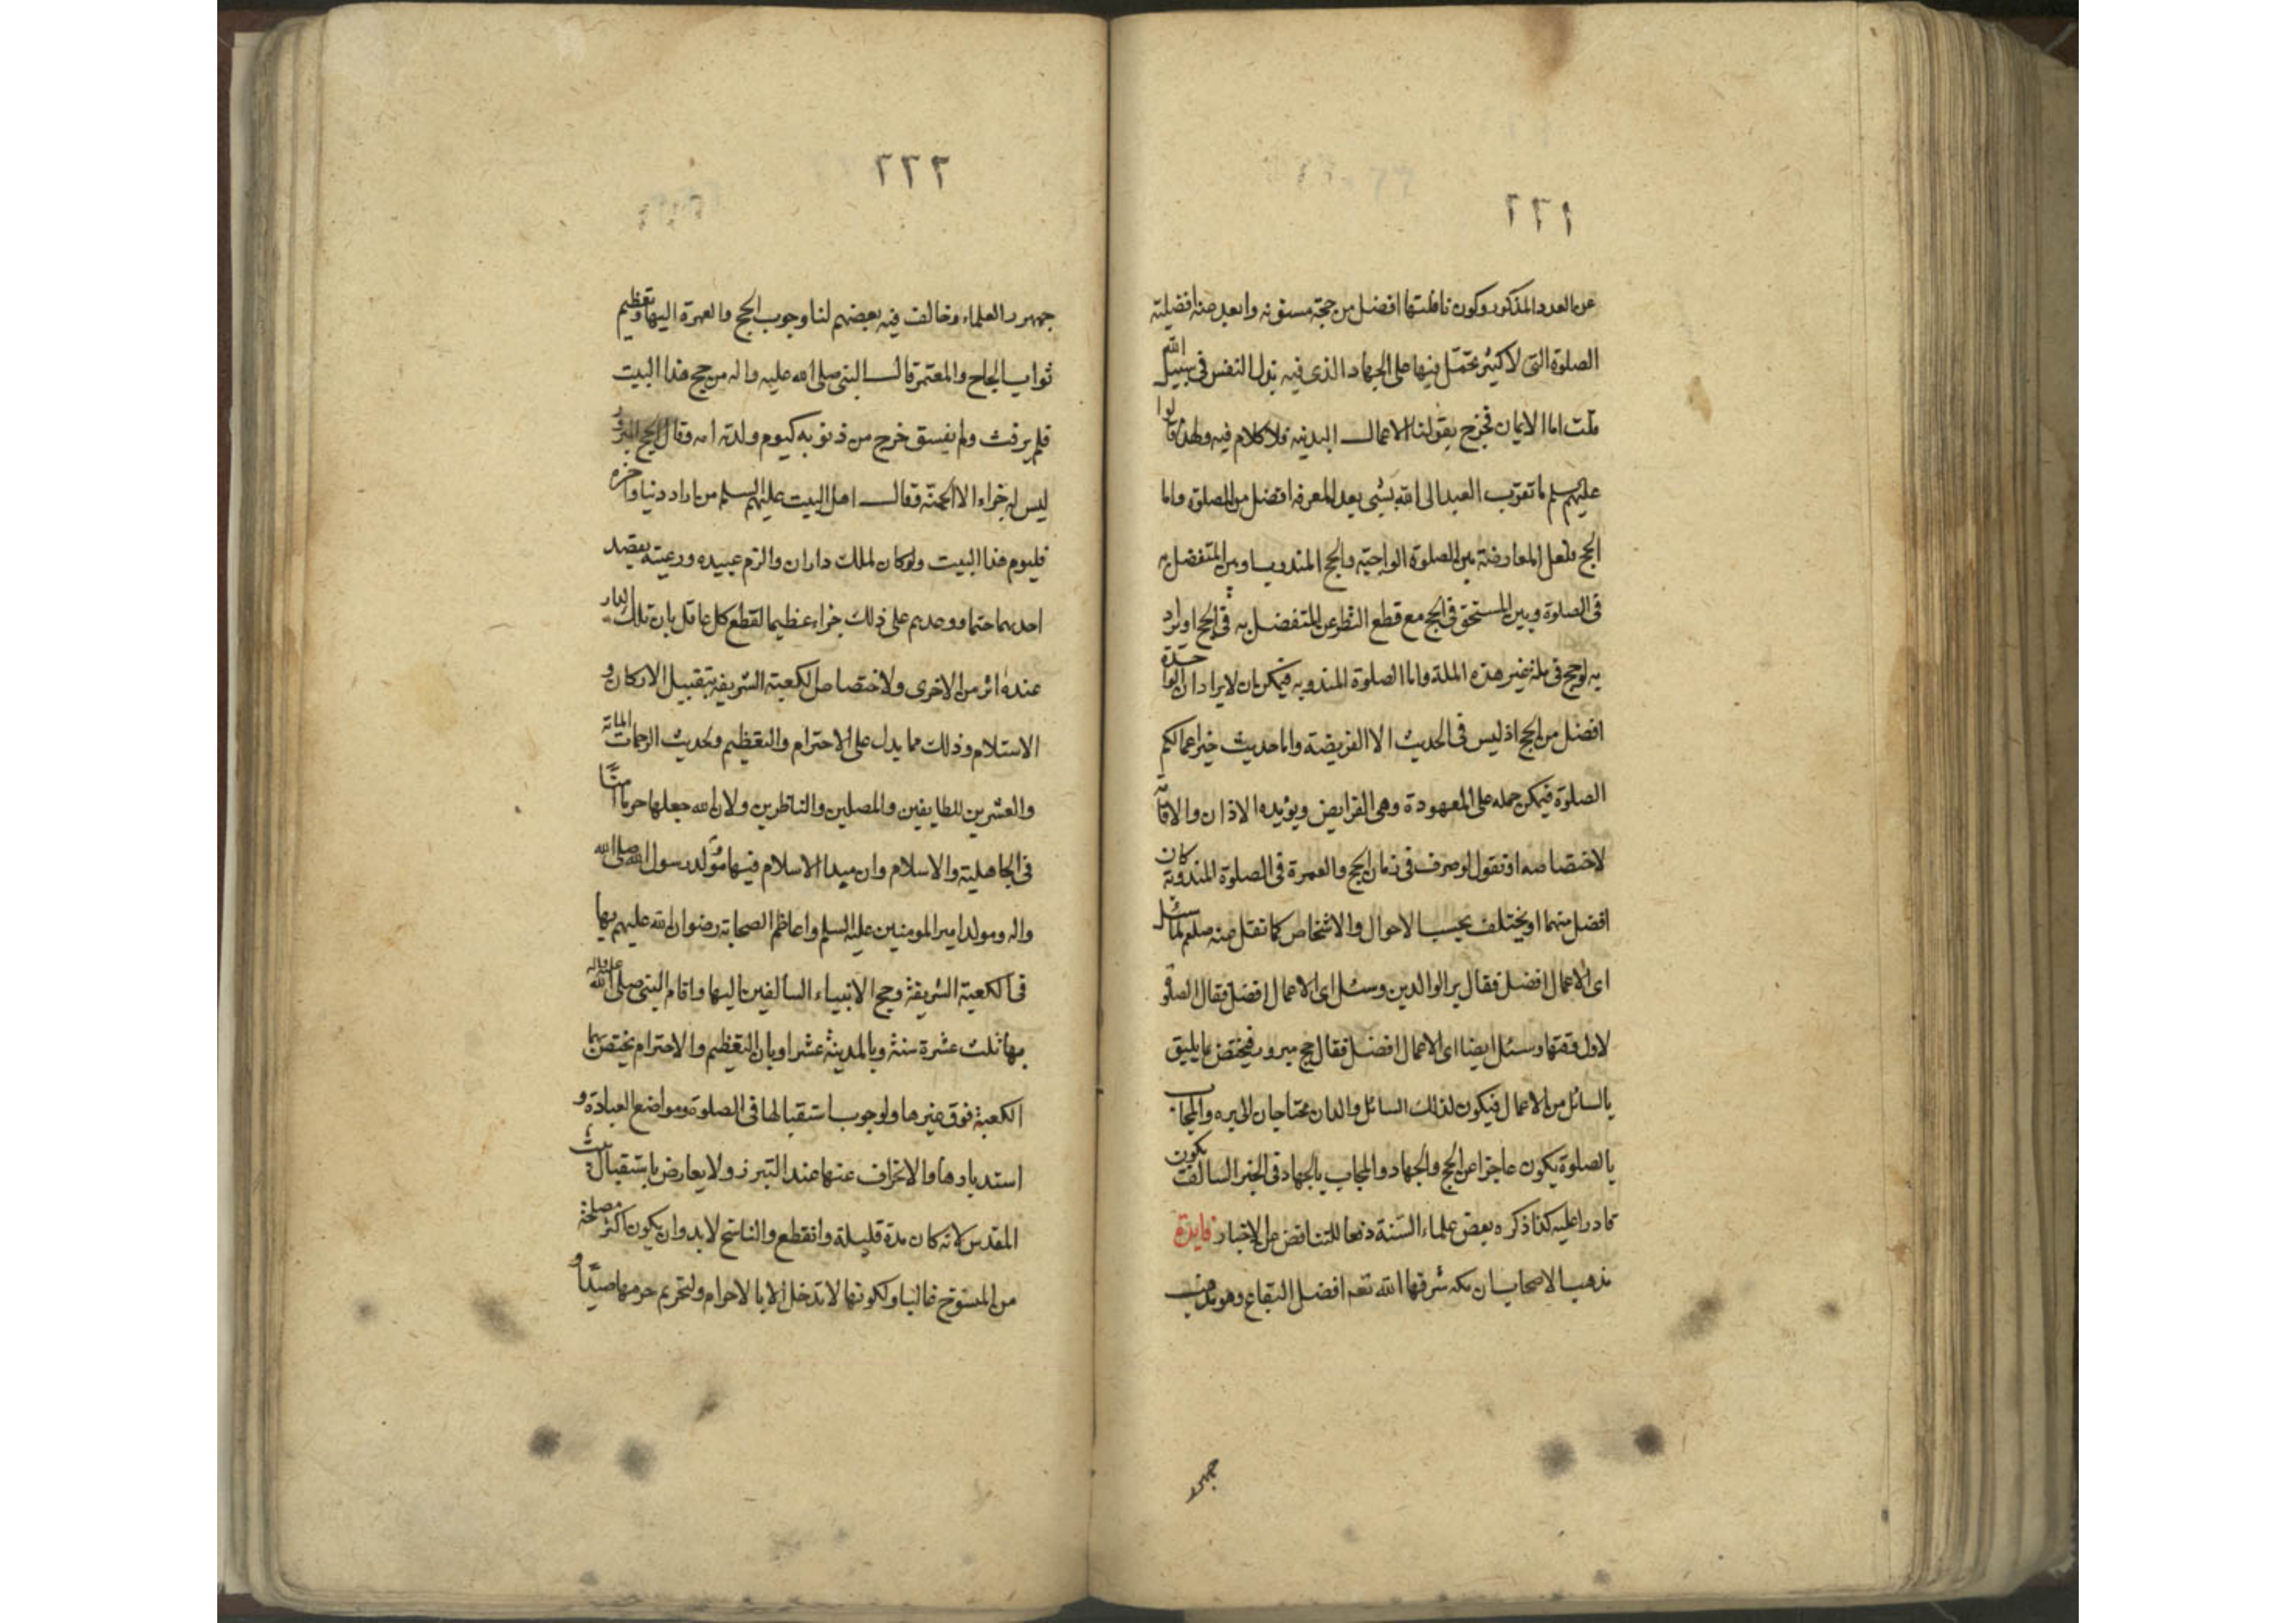 ٢٢١
عن العدد المذكور وكون نافلتها افضل من حجة مسنونه وابعد منه افضلية
الصلوة التى لا كثير تحمّل فيها على الجهاد الذى فيه بذل النفس فى سبيل الله
قلت اما الايمان فخرج بقولنا الاعمال البدنيه فلا كلام فيه ولهذا قالوا
عليهم سلم ما تقرب العبد الى الله بشى بعد المعرفه افضل من الصلوة واما
الحج فلعل المعارضة بين الصلوة الواجبة والحج المندوب او بين المتفضل به
فى الصلوة وبين المستحق فى الحج مع قطع النظر عن المتفضل به فى الحج او يراد
به لو حج فى ملة غير هذه الملة واما الصلوة المندوبه فيمكن ان لا يراد ان الواحدة
افضل من الحج اذ ليس فى الحديث الا الفريضة واما حديث خير اعمالكم
الصلوة فيمكن حمله على المعهودة وهى الفرايض ويؤيده الاذان والاقامة
لاختصاصه او نقول لو صرف فى زمان الحج والعمرة فى الصلوة المندوبة كان
افضل منهما او يختلف بحسب الاحوال والاشخاص كما نقل منه صلعم لما سئل
اى الاعمال افضل فقال بر الوالدين وسئل اى الاعمال افضل فقال الصلوة
لاول وقتها وسئل ايضا اى الاعمال افضل فقال حج مبرور فيختص بما يليق
بالسائل من الاعمال فيكون لذلك السائل والدان محتاجان الى بره والمجاب
بالصلوة يكون عاجزا عن الحج والجهاد والمجاب بالجهاد فى الخبر السالف يكون
قادرا عليه كذا ذكره بعض علماء السّنة دفعا للتناقض من الاخبار فايدة
مذهب الاصحاب ان مكه شرفها الله تعه افضل البقاع وهو مذهب
جمهور
٢٢٢
جمهور العلماء وخالف فيه بعضهم لنا وجوب الحج والعمرة اليها وتعظيم
ثواب الحاج والمعتمر قال النبى صلى الله عليه واله من حج هذا البيت
فلم يرفث ولم يفسق خرج من ذنوبه كيوم ولدته امه وقال الحج المبرور
ليس له جزاء الا الجنّة وقال اهل البيت عليهم السلم من اراد دنيا واخره
فليوم هذا البيت ولو كان لملك داران والزم عبيده ورعيته بقصد
احدهما حتما ووعدهم على ذلك جزاء عظيما لقطع كل عاقل بان تلك الدار
عنده اثر من الاخرى ولاختصاص الكعبة الشريفه بتقبيل الاركان و
الاستلام وذلك مما يدل على الاحترام والتعظيم ولحديث الرحمات المائة
والعشرين للطايفين والمصلين والناظرين ولان الله جعلها حرما امنّا
فى الجاهلية والاسلام وان مبدا الاسلام فيها مولد رسول الله صلى الله
واله ومولد امير المومنين عليه السلم واعاظم الصحابة رضوان الله عليهم بها
فى الكعبة الشريفة وحج الانبياء السالفين اليها واقام النبى صلى الله عليه واله
بها ثلث عشرة سنة وبالمدينة عشرا وبان التعظيم والاحترام يختص بهما
الكعبة فوق غيرها ولوجوب استقبالها فى الصلوة ومواضع العبادة و
استدبارها والانحراف عنها عند التبرز ولا يعارض باستقبال بيت
المقدس لانه كان مدة قليلة وانقطع والناسخ لا بد وان يكون اكثر مصلحة
من المنسوخ غالبا ولكونها لا تدخل الا بالاحرام ولتحريم حرمها صيدًا و